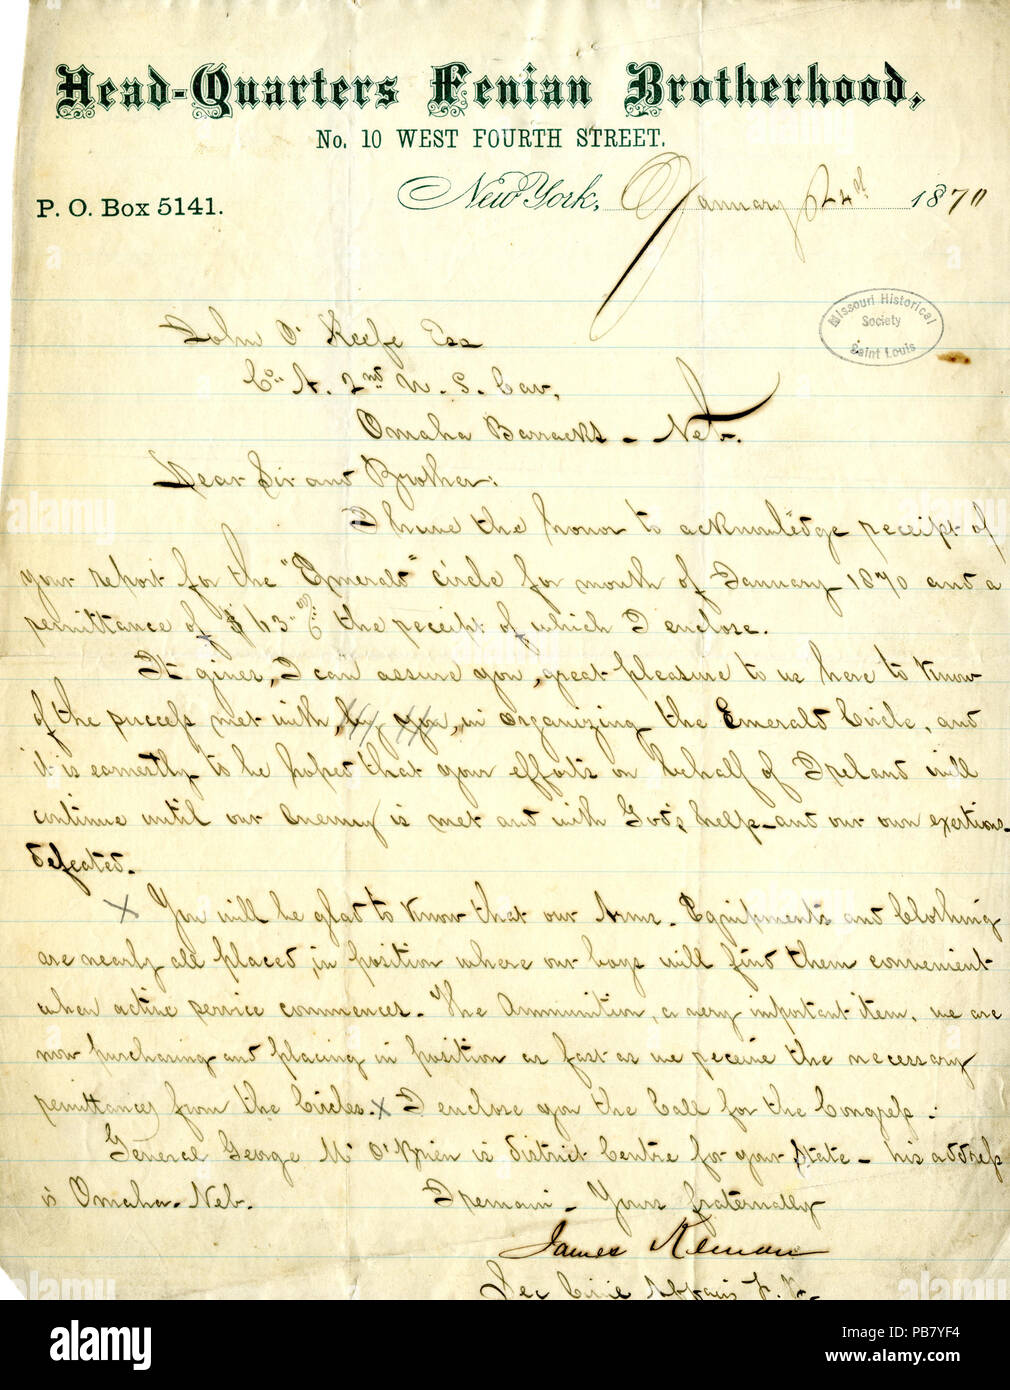 Head-Quarters Fenian Brotherhood,
No. 10 WEST FOURTH STREET.
P. O. Box 5141.
New York, January 24th 1870
Missouri Historical
Society
Saint Louis
John O'Keefe Esq
Co. A. 2nd U. S. Cav,
Omaha Barracks - Neb.
Dear Sir and Brother:
I have the honor to acknowledge receipt of
your report for the "Emerald" circle for month of January 1870 and a
remittance of $ 43 the receipt of which I enclose.
It gives, I can assure you, great pleasure to us here to know
of the success met with, by you, in organizing the Emerald Circle, and
it is earnestly to be hoped that your efforts on behalf of Ireland will
continue until our Enemy is met and with God's help - and our own exertions -
defeated.
x You will be glad to know that our Arms. Equipments and Clothing
are nearly all placed, in position where our boys will find them convenient
when active service commences. The Ammunition, a very important item, we are
now purchasing and placing in position as fast as we receive the necessary
remittances from the Circles. x I enclose you the Call for the Congress.
General George M O'Brien is district Centre for your State - his address
is Omaha - Neb. I remain - Yours fraternally
James
Sec Civil Affairs F. B.
alamy
alamy
Image ID: PB7YF4
www.alamy.com